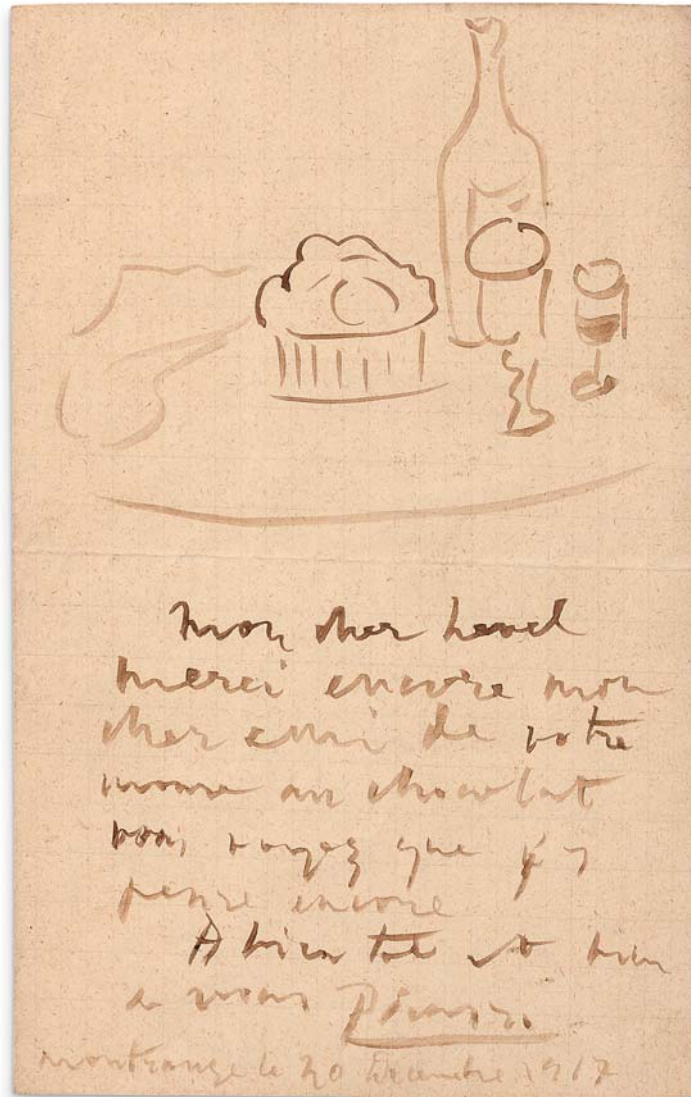 mon cher Level
merci encore mon
cher ami de votre
mousse au chocolat
vous voyez que j'y
pense encore
A bien tot et bien
a vous Picasso
montrouge le 20 decembre 1917